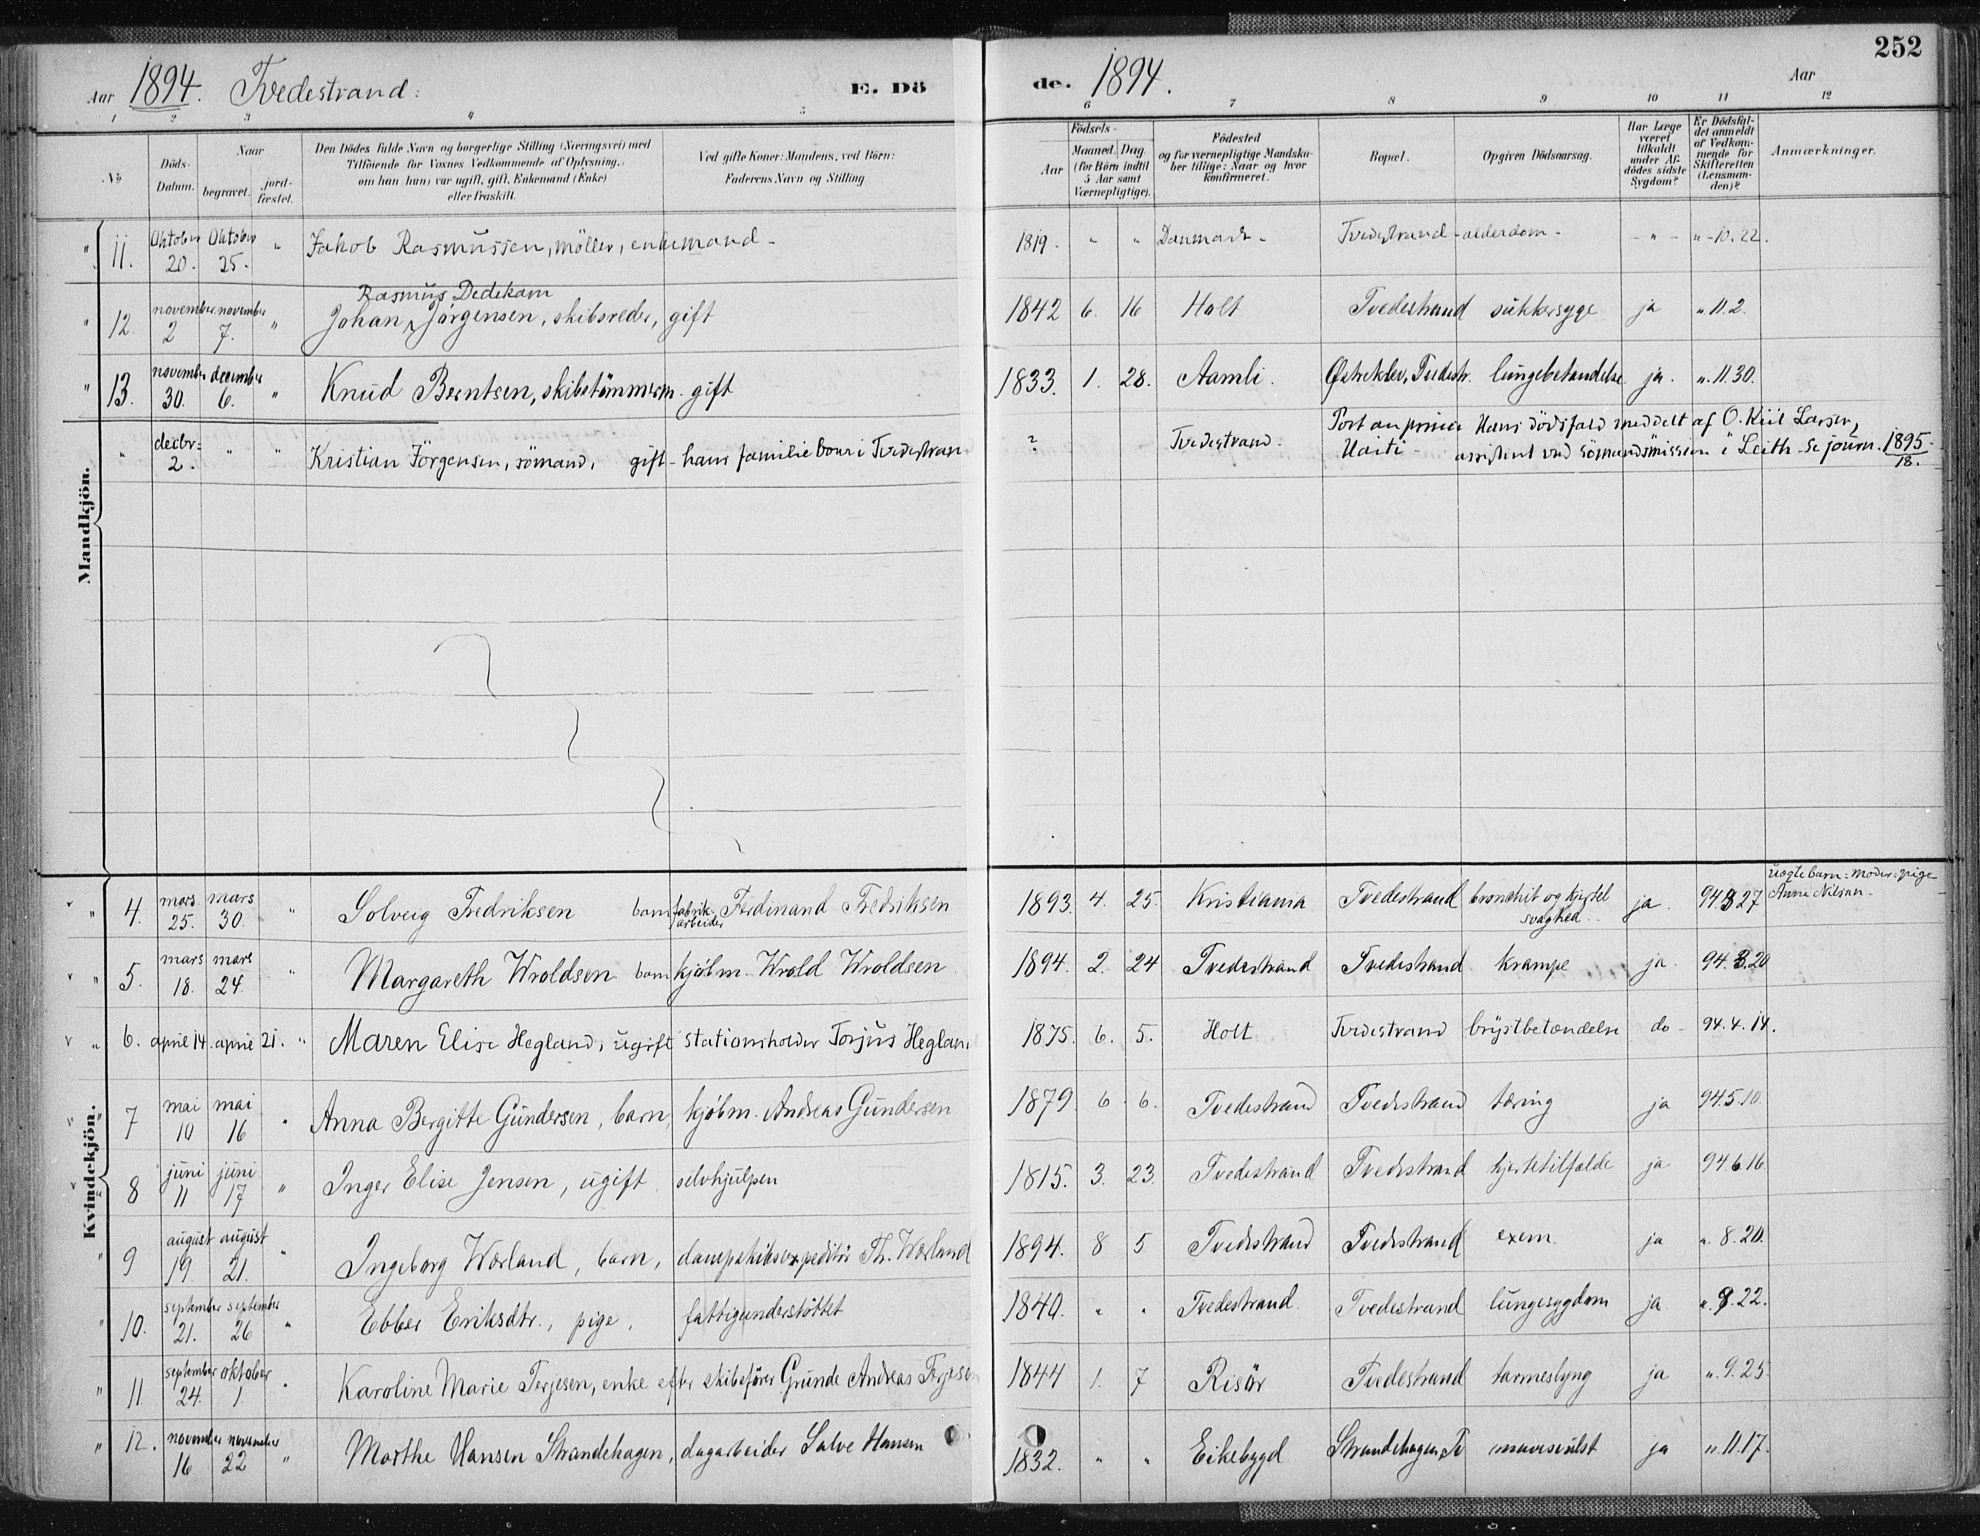 252
Aar 1894. Tvedestrand: E. Dö de. 1894. Aar
1 2 3 4 5 6 7 8 9 10 11 12
No
Döds-Datum.
Naar
begravet.
jord-fæstet.
Den Dödes fulde Navn og borgerlige Stilling (Næringsvei) med
Tilföiende for Voxnes Vedkommende af Oplysning,
om han (hun) var ugift, gift, Enkemand (Enke)
eller fraskilt.
Ved gifte Koner: Mandens, ved Börn:
Faderens Navn og Stilling
Födsels-
Aar
Maaned. Dag.
(for Börn indtil
5 Aar samt
Værnepligtige).
Födested
og for værnepligtige Mandska-
ber tillige: Naar og hvor
konfirmeret.
Bopæl.
Opgiven Dödsaarsag.
Har Læge
været
tilkaldt
under Af-
dødes sidste
Sygdom?
Er Dödsfal-
det anmeldt
af Vedkom-
mende for
Skifteretten
(Lensman-
den)?
Anmærkninger.
Mandkjön.
" 11. Oktober 20. Oktober 25. " Jakob Rasmussen, möller, enkemand - 1819. " " Danmark - Tvedestrand - alderdom - - " - " - 10.22.
Rasmus Dedekam
" 12. november 2 november 7. " Johan Jörgensen, skibsreder, gift 1842 6. 16 Holt Tvedestrand sukkersyge ja ". 11.2.
" 13. november 30. december 6. " Knud Berntsen, skibstömmerm. gift 1833. 1. 28. Aamli. Østreklev, Tvedestr. lungebetændelse ja. ". 11.30.
" decbr: 2. " " Kristian Jörgensen, sömand, gift - hans familie bour i Tvedestran ? Tvedestrand. Port au prince Haiti - Hans dödsfald meddelt af O. Kiil Larsen,
assistent ved sömandsmission i Leith - Se journ. 1895 - 18.
Kvindekjön.
v " 4. mars 25. mars 30. " Solveig Fredriksen barn fabrik arbeider Ferdinand Fredriksen 1893. 4. 25. Kristiania Tvedestrand bronchit og kjertel svaghed. ja. 94.3.27 uægte barn: moder: pige Anne Nilsen -
v " 5. mars 18. mars 24. " Margareth Wroldsen barn kjöbm. Wrold Wroldsen 1894. 2. 24 Tvedestrand Tvedestrand krampe ja. 94.3.20
v " 6. april 14. april 21. " Maren Elise Hegland, ugift stationsholder Torjus Heglan 1875. 6. 5. Holt Tvedestrand brystbetændelse do - 94.4.14.
v " 7 mai 10 mai 16 " Anna Bergitte Gundersen, barn, kjöbm. Andreas Gundersen 1879 6 6. Tvedestrand Tvedestrand tæring ja 94.5.10.
v " 8 juni 11 juni 17 " Inger Elise Jensen, ugift selvhjulpen 1815. 3. 23. Tvedestrand Tvedestrand hjertetilfælde ja 94.6.16.
" 9 august 19 august 21. " Ingeborg Wærland, barn, dampskibsexpeditör Th. Wærland 1894. 8 5 Tvedestrand Tvedestrand exem ja ". 8.20.
" 10. september 21. september 26 " Ebber Eriksdtr., pige, fattigunderstöttet 1840. " " Tvedestrand Tvedestrand lungesygdom ja. ". 9.22.
" 11 september 24. oktober 1. " Karoline Marie Terjesen, enke efter skibsförer Gunde Andreas Terjesen 1844 1. 7 Risör Tvedestrand tarmeslyng ja ". 9.25.
" 12. november 16 november 22 " Marthe Hansen Strandehagen, dagarbeider Salve Hansen 1832. " " Eikebygd Strandehagen, Tv mavesvulst ja ". 11.17.